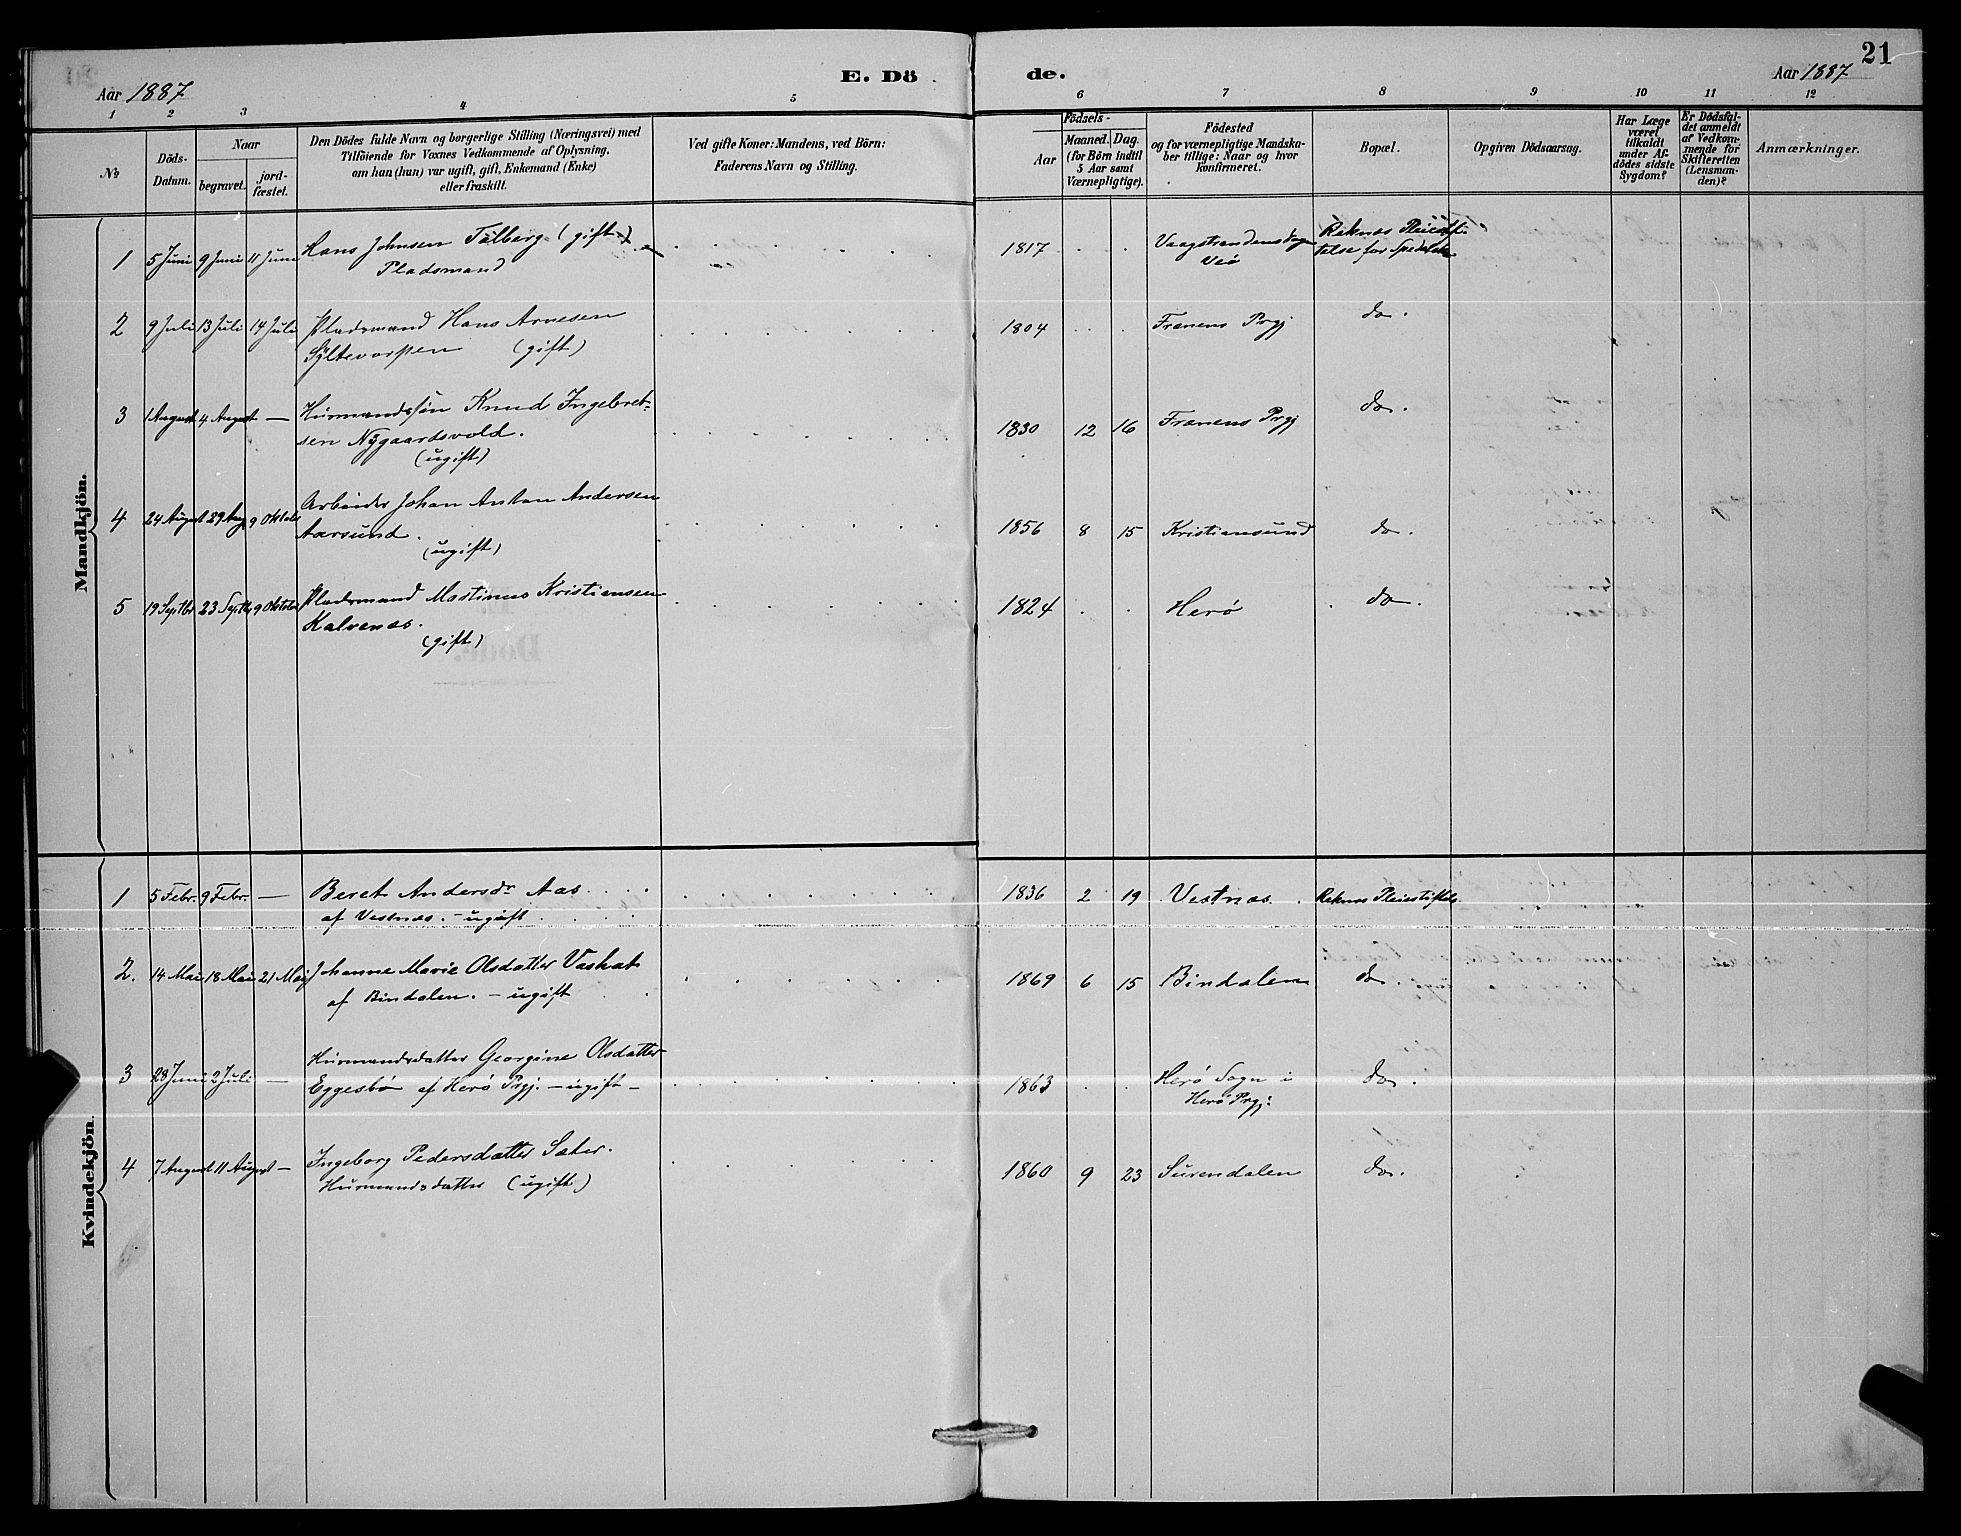 21
E. Dö de.
Aar 1887
Aar 1887
1 2 3 4 5 6 7 8 9 10 11 12
№
Döds-
Datum.
Naar
begravet.
jord-
fæstet.
Den Dödes fulde Navn og borgerlige Stilling (Næringsvei) med
Tilföiende for Voxnes Vedkommende af Oplysning,
om han (hun) var ugift, gift, Enkemand (Enke)
eller fraskilt.
Ved gifte Koner: Mandens, ved Börn:
Faderens Navn og Stilling.
Födsels-
Aar
Maaned. Dag.
(for Börn indtil
5 Aar samt
Værnepligtige).
Födested
og for værnepligtige Mandska-
ber tillige: Naar og hvor
konfirmeret.
Bopæl.
Opgiven Dödsaarsag.
Har Læge
været
tilkaldt
under Af-
dödes sidste
Sygdom?
Er Dödsfal-
det anmeldt
af Vedkom-
mende for
Skifteretten
(Lensman-
den)?
Anmærkninger.
Mandkjön.
1 5 Juni 9 Juni 11 Juni Hans Johnsen Tälberg (gift) 1817 Reknæs Pleiestif-
Pladsmand Veö telse for Spedalske
2 9 Juli 13 Juli 14 Juli Pladsmand Hans Arnesen 1804 Frænens Prgj do.
Syltevorpen (gift)
3 1 August 4 August — Husmandssön Knud Ingebret- 1830 12 16 Frænens Prgj do.
sen Nygaardsvold.
(ugift)
4 24 August 29 Aug 9 Oktober Arbeider Johan Anton Andersen 1856 8 15 Kristiansund do.
Aarsund.
(ugift)
5 19 Septbr 23 Septb 9 Oktober Pladsmand Martinus Kristiansen 1824 Herö do.
Kalvenæs.
(gift)
Kvindekjön.
1 5 Febr. 9 Febr. — Beret Andersdr Aas 1836 2 19 Vestnæs. Reknæs Pleiestiftels.
af Vestnæs. — ugift
2. 14 Mai 18 Mai 21 Mai Johanne Marie Olsdatter 1869 6 15 Bindalen do.
af Bindalen. — ugift
3 28 Juni 2 Juli — Husmandsdatter Georgine Olsdatter 1863 Herö Sogn i do.
Eggesbö af Herö Prgj. — ugift — Herö Prgj:
4 7 August 11 August — Ingeborg Pedersdatter Sæter. 1860 9 23 Surendalen do.
Husmandsdatter (ugift)